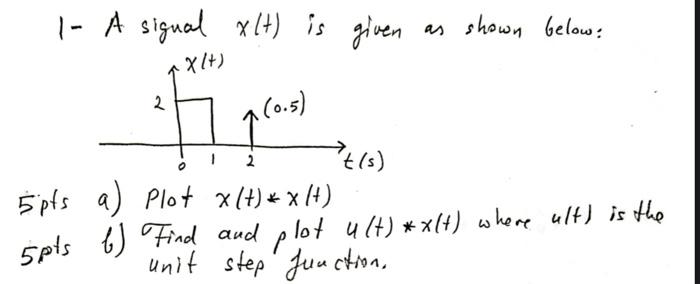 1- A signal x(t) is given as shown below:
x(t)
2
(0.5)
0 1 2 t(s)
5pts a) Plot x(t) * x(t)
5pts b) Find and plot u(t) * x(t) where u(t) is the
unit step function.